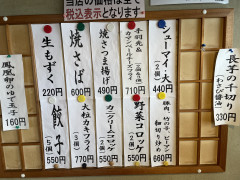 当店の価格は全て
税込表示となります
長芋の千切り
(わさび醤油)
330円
シューマイ
(2個)
440円
豚肉、竹の子、ピーマンの
細切り炒め
660円
手羽先&
カマンベールチーズフライ
710円
野菜コロッケ
(2個)
550円
焼さつま揚げ
490円
カニクリームコロッケ
(2個)
550円
焼さば
600円
大粒カキフライ
(5個)
770円
生もずく
220円
餃子
(5個)
550円
鳳凰卵のゆで玉子
160円